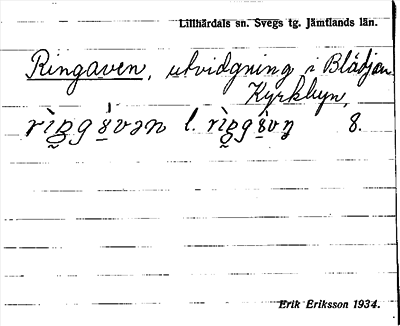 Lillhärdals sn. Svegs tg. Jämtlands län.
Ringaven, utvidgning i Blädjan.
Kyrkbyn,
l. 8.
Erik Eriksson 1934.